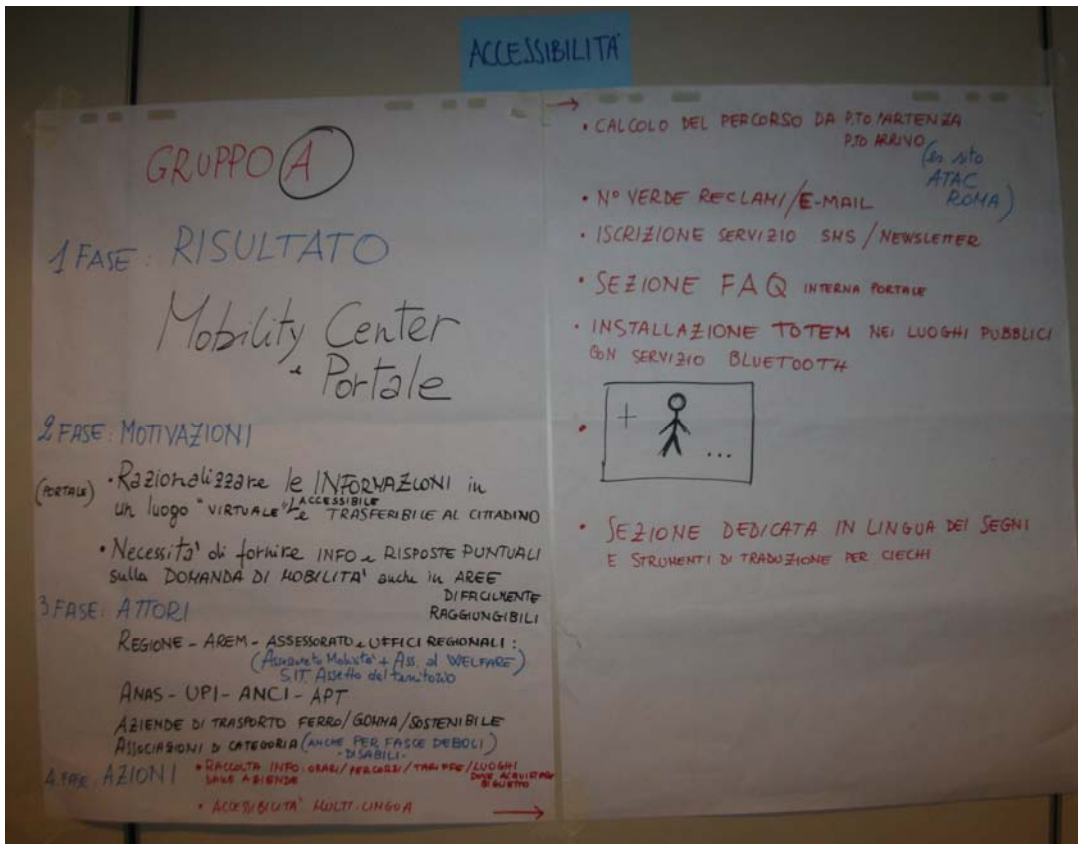 ACCESSIBILITÀ
GRUPPO A
1 FASE: RISULTATO
Mobility Center
e Portale
2 FASE: MOTIVAZIONI
(PORTALE) • Razionalizzare le INFORMAZIONI in
un luogo "VIRTUALE" ACCESSIBILE e TRASFERIBILE AL CITTADINO
• Necessità di fornire INFO e RISPOSTE PUNTUALI
sulla DOMANDA DI MOBILITÀ anche in AREE
DIFFICILMENTE
RAGGIUNGIBILI
3 FASE: ATTORI
REGIONE - AREM - ASSESSORATO e UFFICI REGIONALI:
(Assessorato Mobilità + Ass. al WELFARE)
S.I.T. Assetto del territorio
ANAS - UPI - ANCI - APT
AZIENDE DI TRASPORTO FERRO/GOMMA/SOSTENIBILE
ASSOCIAZIONI DI CATEGORIA (ANCHE PER FASCE DEBOLI)
- DISABILI -
4 FASE: AZIONI • RACCOLTA INFO: ORARI/PERCORSI/TARIFFE/LUOGHI
DALLE AZIENDE DOVE ACQUISTARE
BIGLIETTO
• ACCESSIBILITÀ MULTI-LINGUA
• CALCOLO DEL PERCORSO DA P.TO PARTENZA
P.TO ARRIVO
(es sito
ATAC
ROMA)
• N° VERDE RECLAMI/E-MAIL
• ISCRIZIONE SERVIZIO SMS/NEWSLETTER
• SEZIONE FAQ INTERNA PORTALE
• INSTALLAZIONE TOTEM NEI LUOGHI PUBBLICI
CON SERVIZIO BLUETOOTH
• + ...
• SEZIONE DEDICATA IN LINGUA DEI SEGNI
E STRUMENTI DI TRADUZIONE PER CIECHI